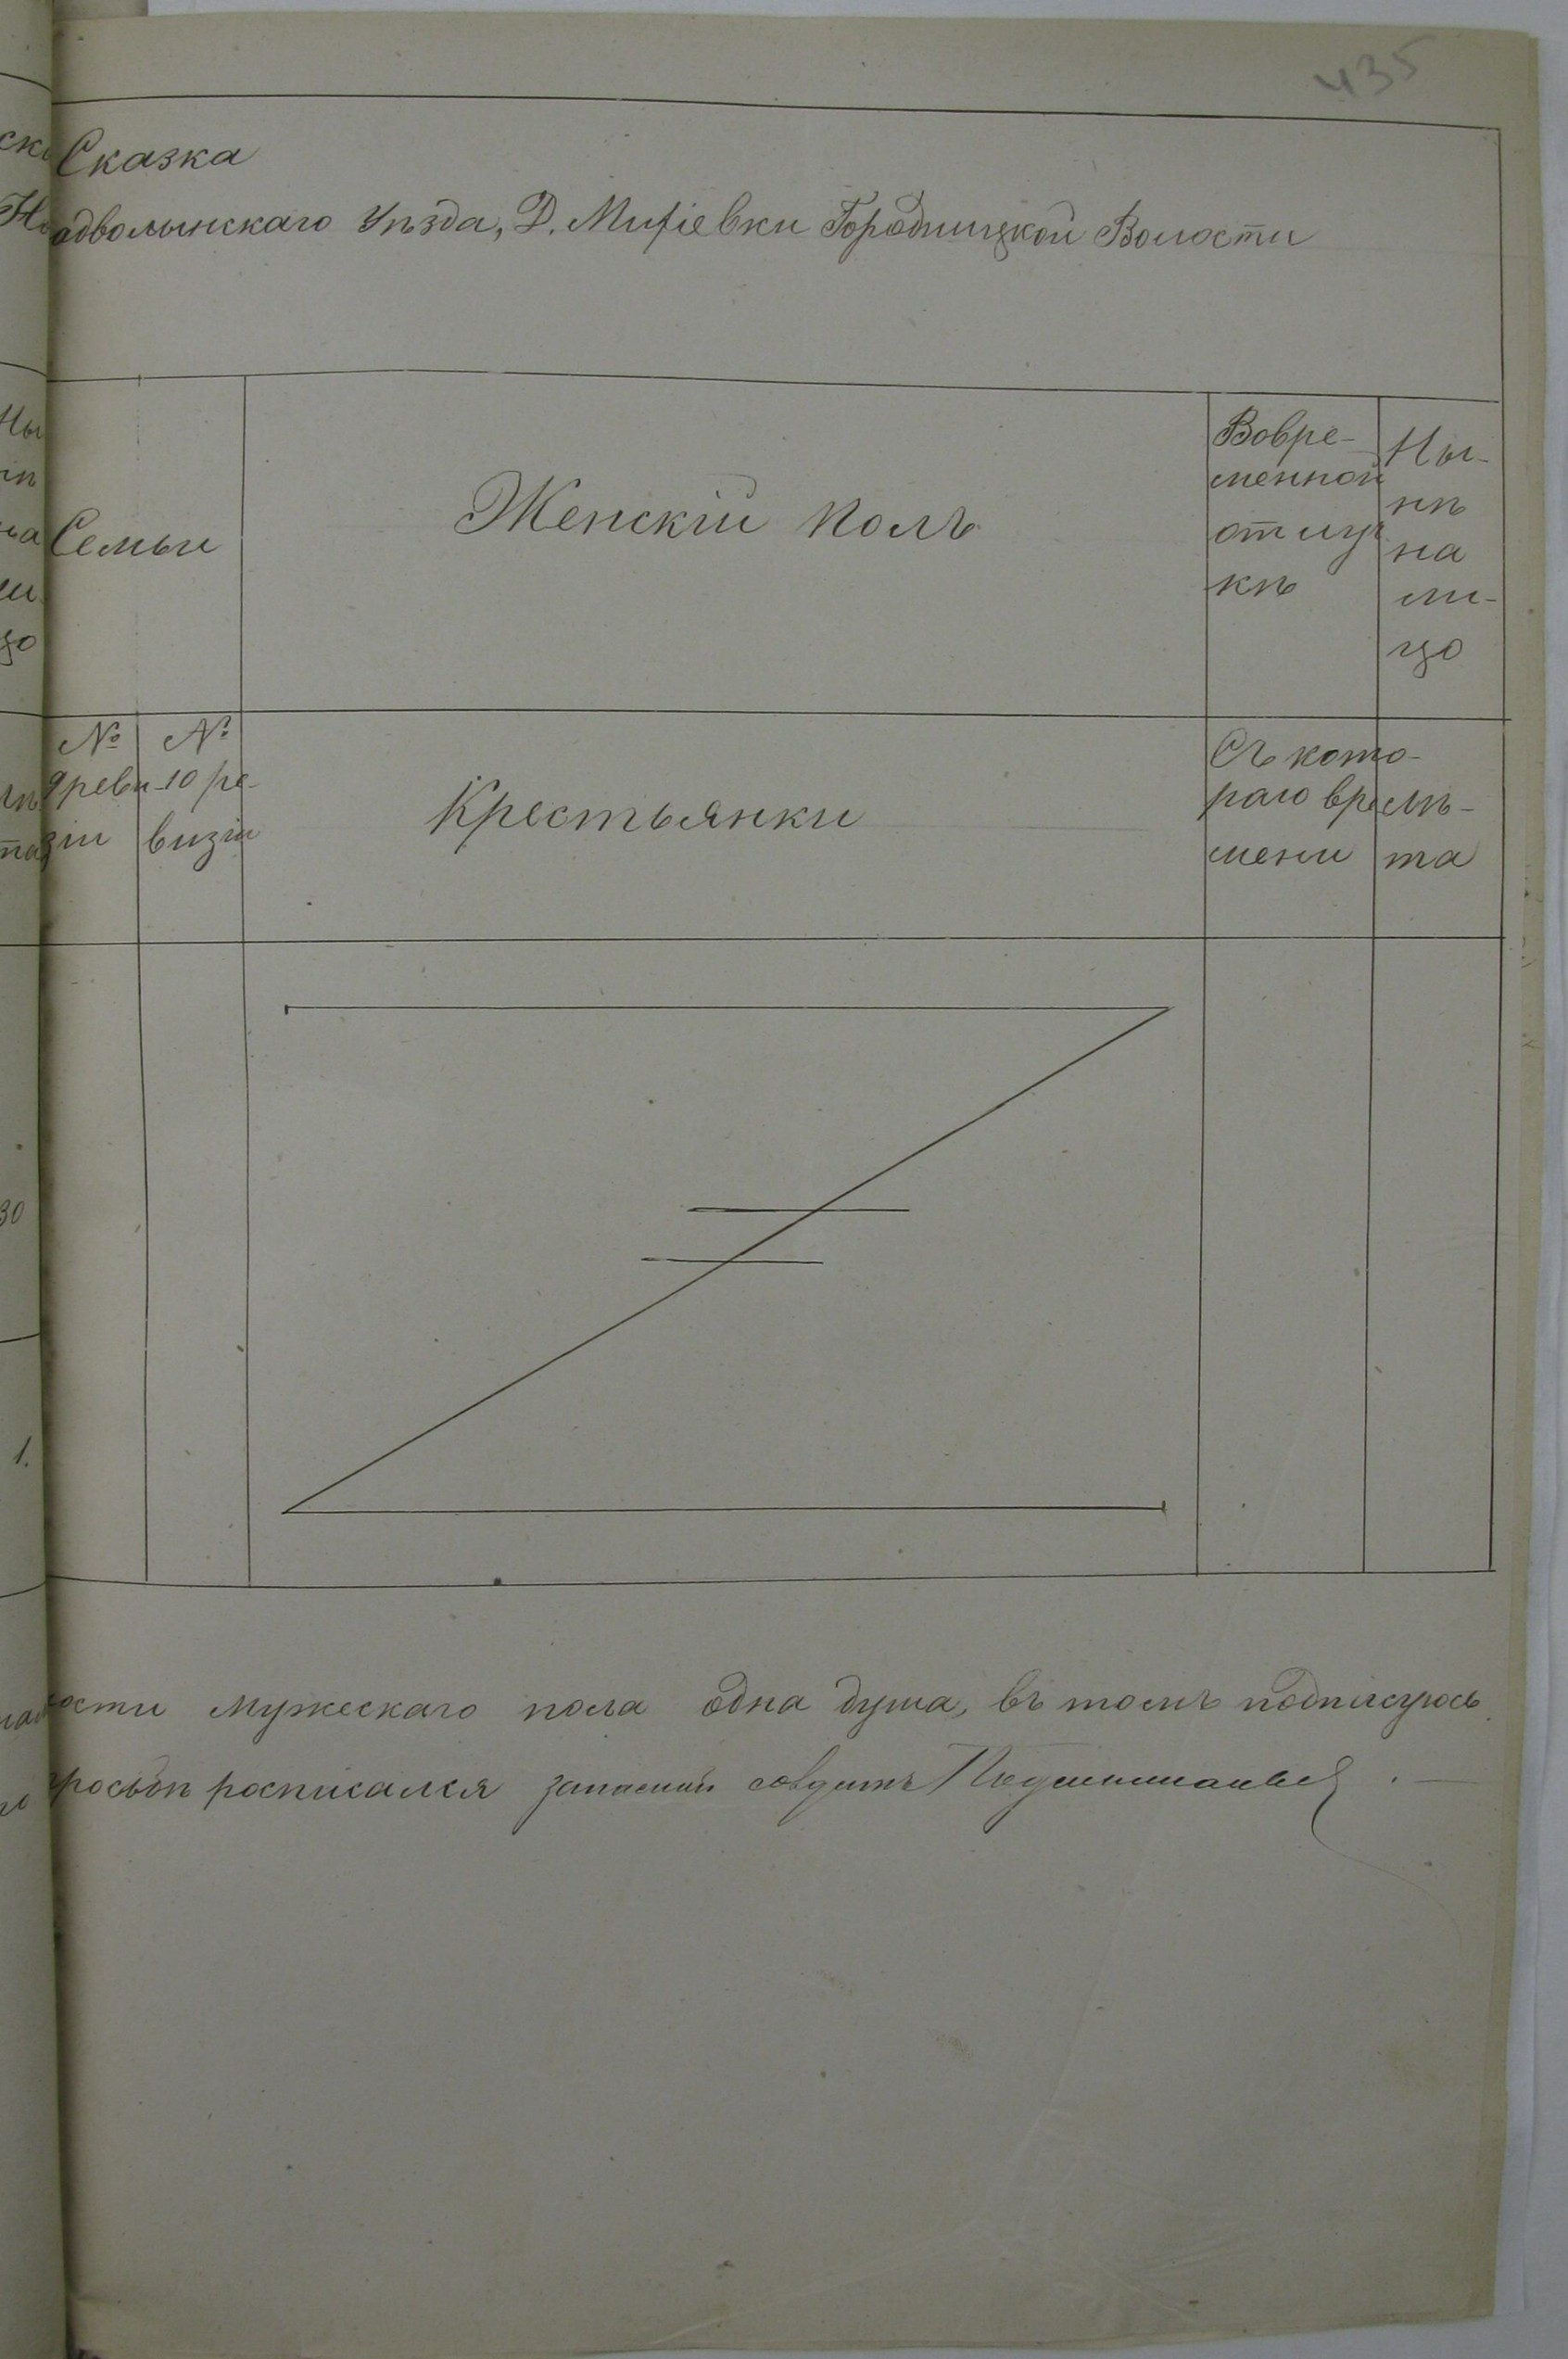 435
Сказка
одволынскаго Уѣзда, Д. Мифіевки Городницкой Волости
Семьи
Женскій полъ
Вовре-
менной
отлуч
кѣ
Ны-
нѣ
на
ли-
цо
№
9 реви-
зіи
№
10 ре-
визіи
Крестьянки
Съ кото-
раго вре
мени
Лѣ-
та
ности мужескаго пола одна душа, въ томъ подписуюсь
просьбѣ росписался запасный